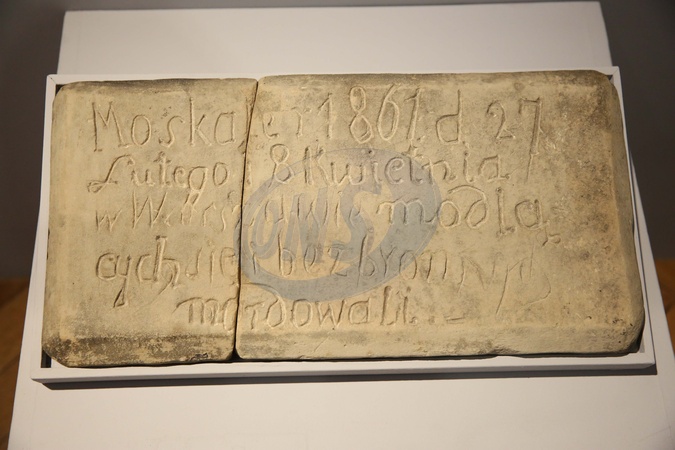 Moskale r 1861 d 27
Lutego i 8 Kwietnia
w Warszawie modlą
cych sie i bezbronnych
mordowali.